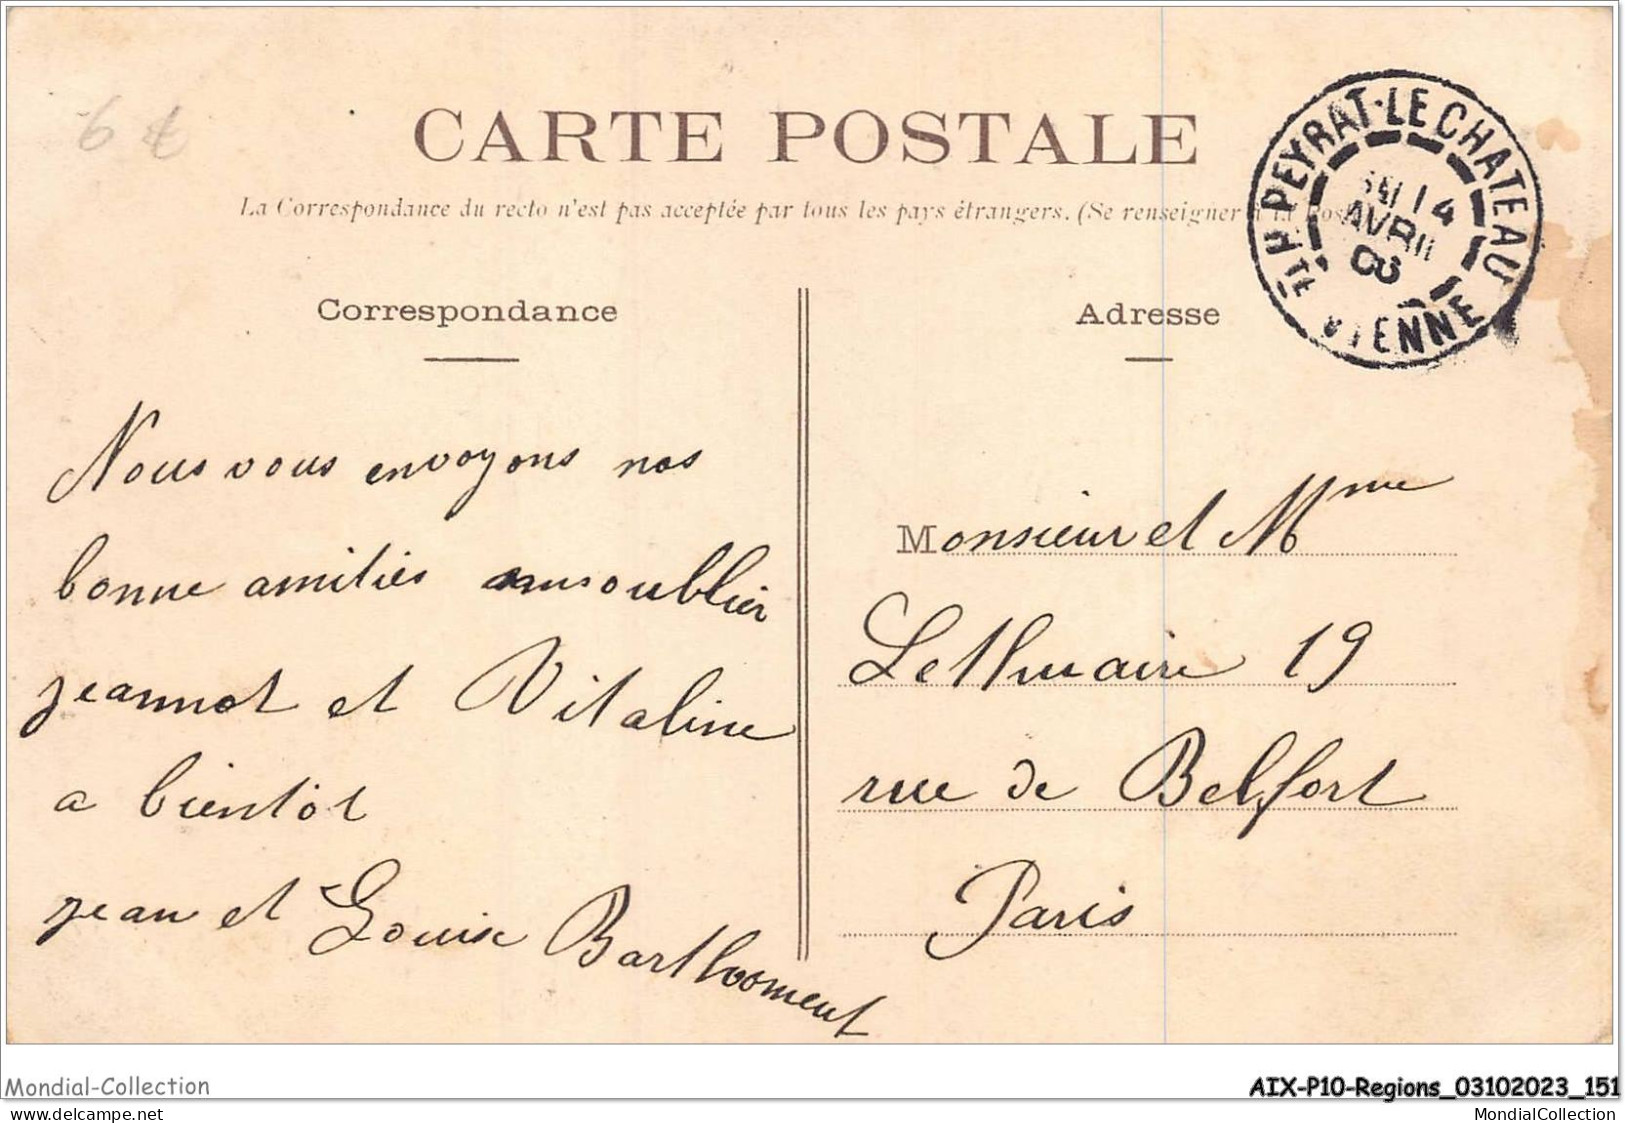 6 €
CARTE POSTALE
La Correspondance du recto n'est pas acceptée par tous les pays étrangers. (Se renseigner à la Poste)
PEYRAT-LE CHATEAU
14
AVRIL
08
Hte VIENNE
Correspondance
Nous vous envoyons nos
bonne amitiés oublier
jeannot et Vitaline
a bientôt
jean et Louise
Adresse
Monsieur et Mme
19
rue de Belfort
Paris
Mondial-Collection
AIX-P10-Regions_03102023_151
delcampe.net
MondialCollection